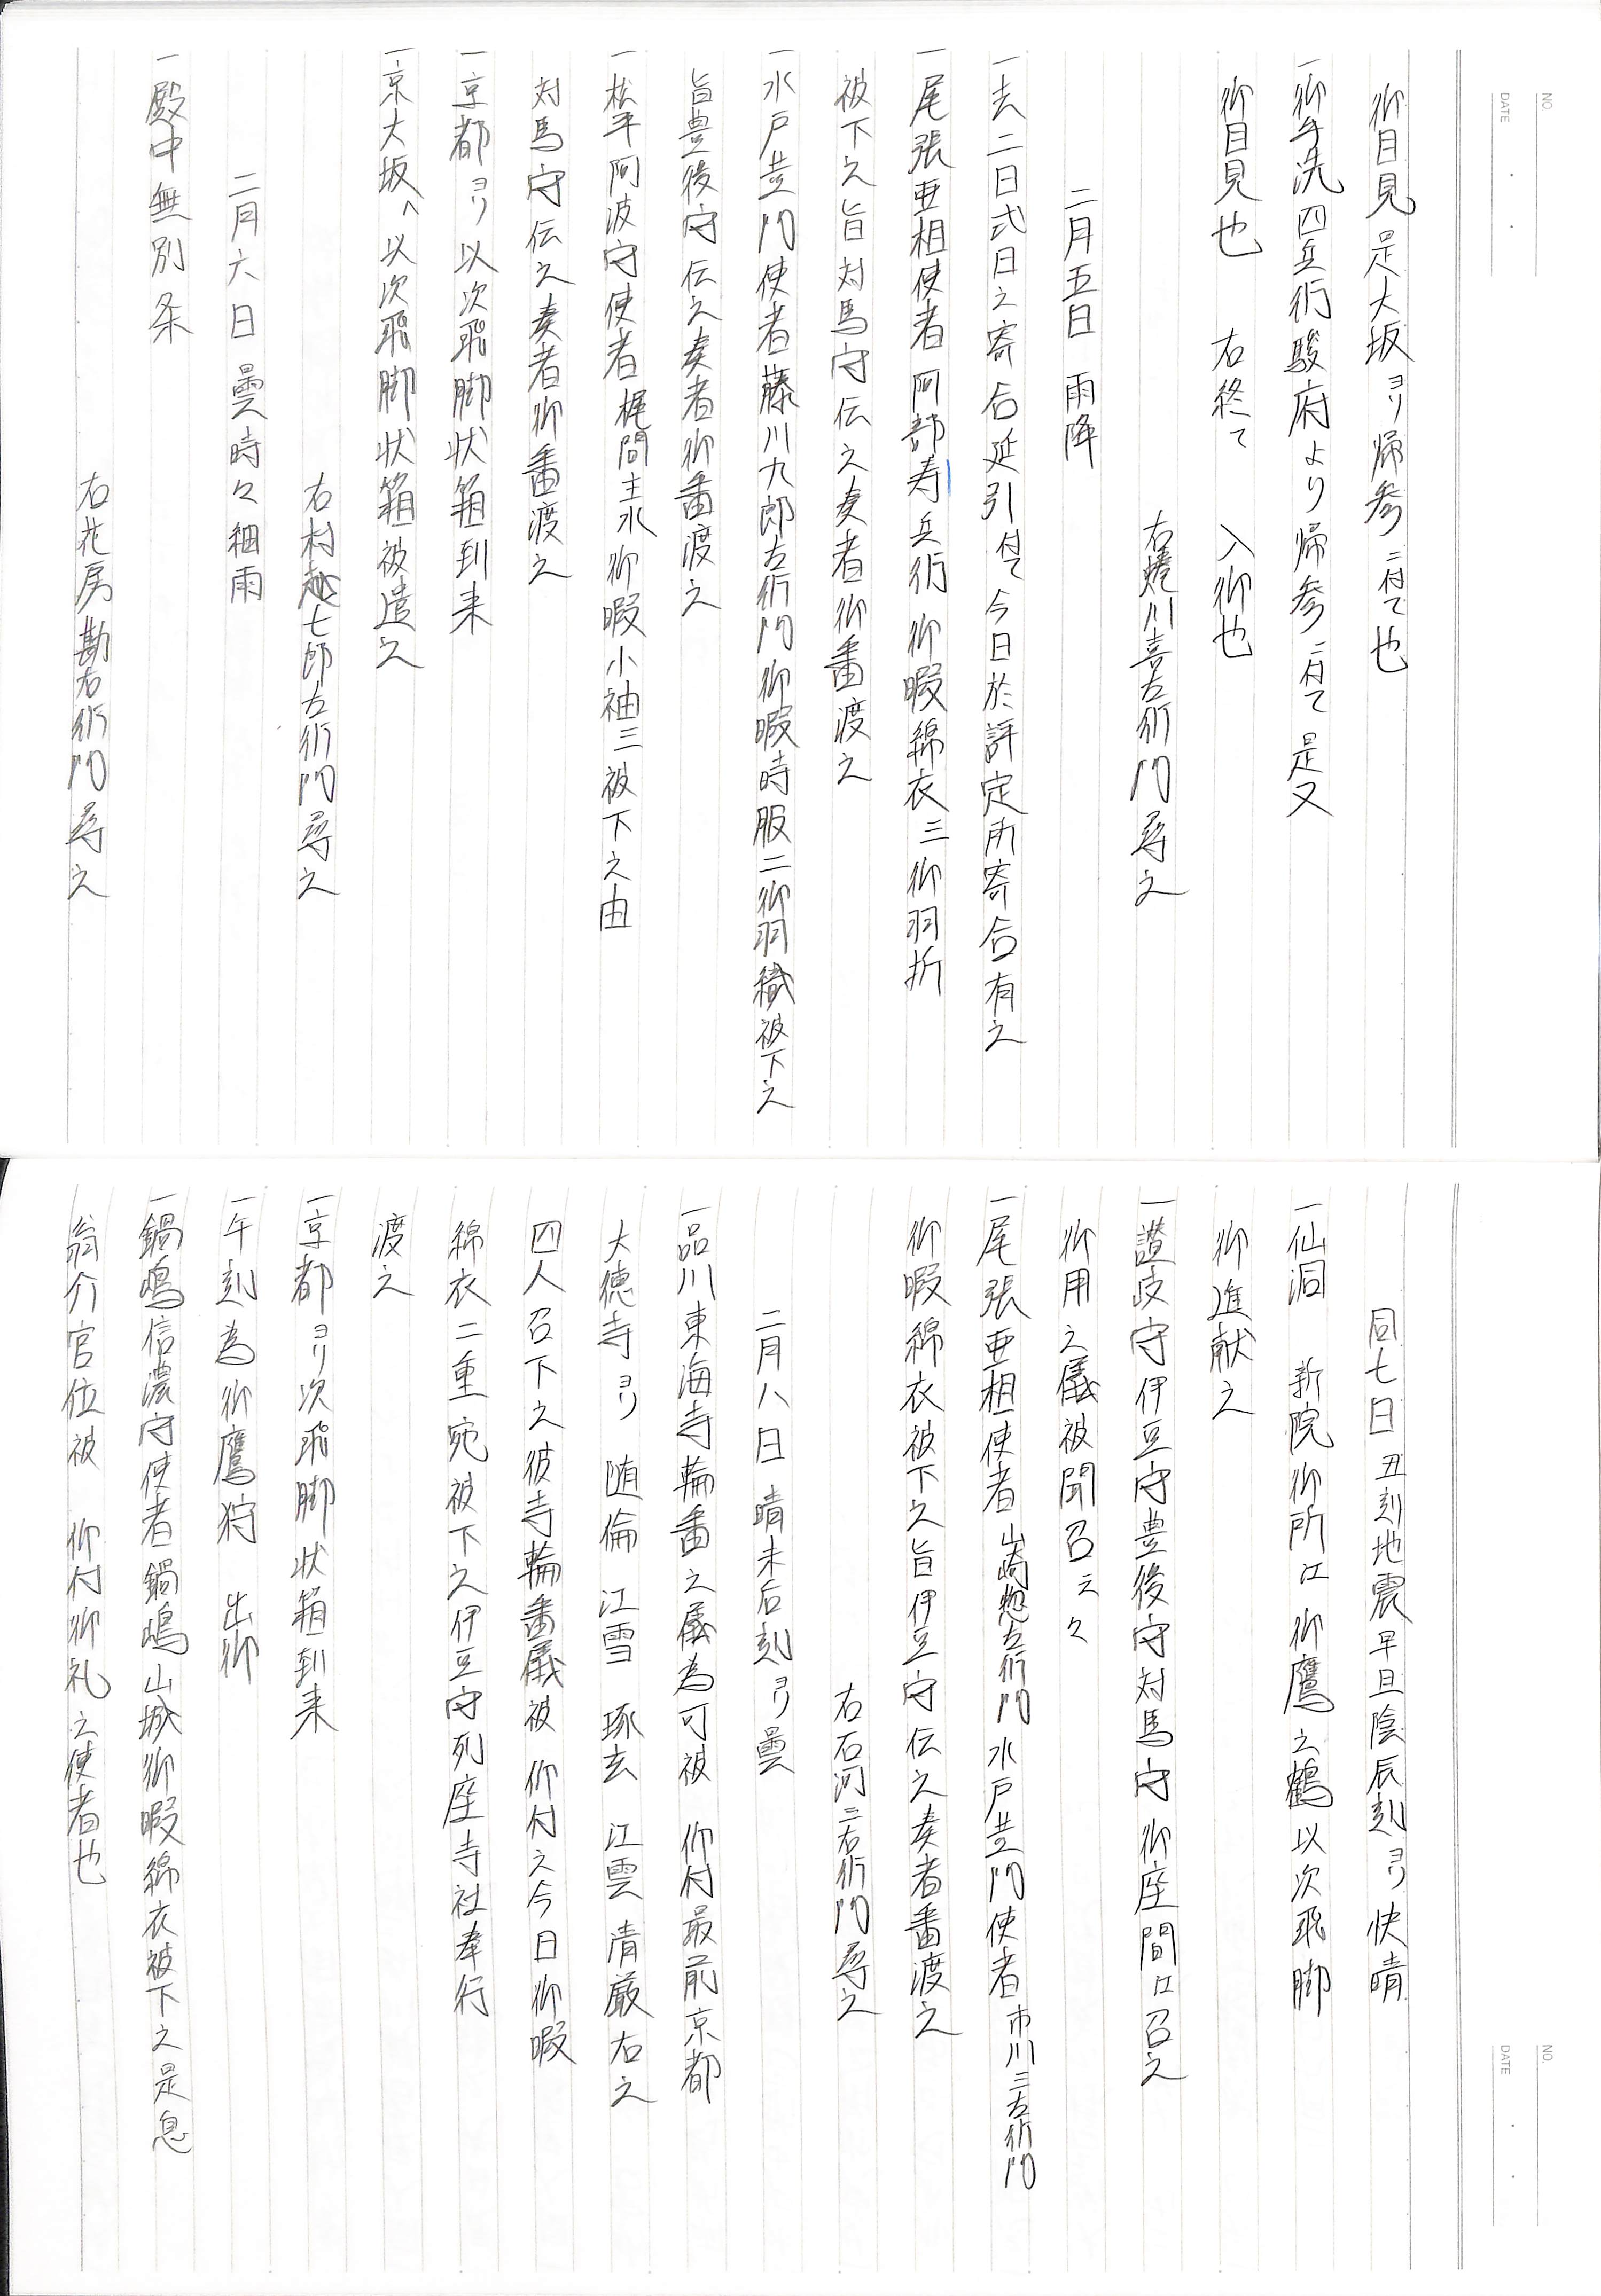 御目見是大坂ヨリ帰参ニ付て也
一御手洗四兵衛駿府より帰参ニ付て是又
御目見也　右終て　入御也
右蜷川喜左衛門尋之
二月五日　雨降
一去二日式日之寄合延引付て今日於評定所寄合有之
一尾張亜相使者阿部寿兵衛御暇綿衣三御羽折
被下之旨対馬守伝之奏者御番渡之
一水戸黄門使者藤川九郎左衛門御暇時服二御羽織被下之
旨豊後守伝之奏者御番渡之
一松平阿波守使者梶間主水御暇小袖三被下之由
対馬守伝之奏者御番渡之
一京都ヨリ以次飛脚状箱到来
一京大坂へ以次飛脚状箱被遣之
右村越七郎左衛門尋之
二月六日　曇時々細雨
一殿中無別条
右花房勘右衛門尋之
同七日　丑刻地震早旦陰辰刻ヨリ快晴
一仙洞　新院御所江御鷹之鶴以次飛脚
御進献之
一讃岐守伊豆守豊後守対馬守御座間江召之
御用之儀被聞召云々
一尾張亜相使者山崎惣左衛門水戸黄門使者市川三左衛門
御暇綿衣被下之旨伊豆守伝之奏者番渡之
右石河三右衛門尋之
二月八日　晴未后刻ヨリ曇
一品川東海寺輪番之儀為可被　仰付最前京都
大徳寺ヨリ　随倫　江雪　琢玄　江雲　清厳右之
四人召下之彼寺輪番儀被　仰付之今日御暇
綿衣二重宛被下之伊豆守列座寺社奉行
渡之
一京都ヨリ次飛脚状箱到来
一午刻為御鷹狩　出御
一鍋嶋信濃守使者鍋嶋山城御暇綿衣被下之是息
翁介官位被　仰付御礼之使者也
NO.
DATE
NO.
DATE